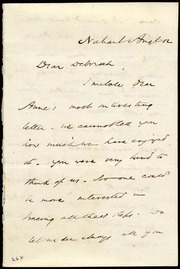 Nahant Augt 12
Dear Deborah,
I inclose dear
Anne's most interesting
letter. we cannot tell you
how much we have enjoyed
it. you were very kind to
think of us. No one could
be more interested in
hearing all these facts. Do
let us see always all you